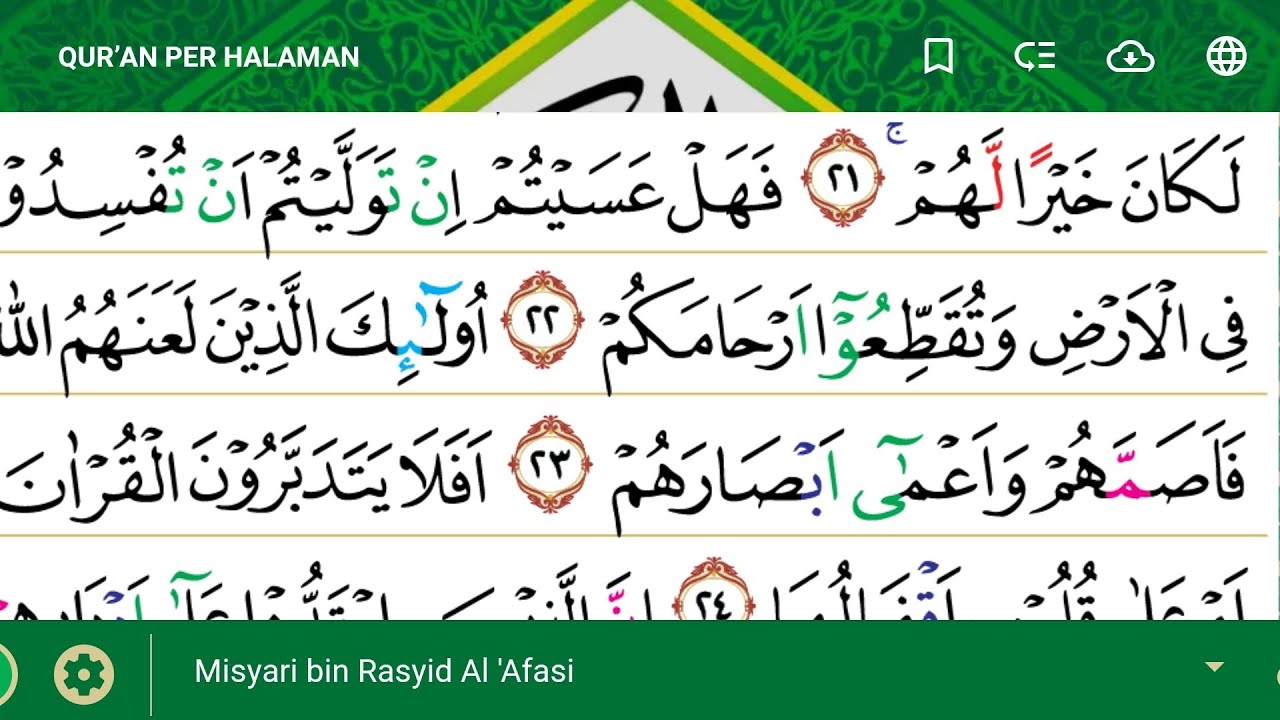 QUR’AN PER HALAMAN
لَكَانَ خَيْرًا لَّهُمْ ۚ ٢١ فَهَلْ عَسَيْتُمْ اِنْ تَوَلَّيْتُمْ اَنْ تُفْسِدُوْ
فِى الْاَرْضِ وَتُقَطِّعُوْٓا اَرْحَامَكُمْ ٢٢ اُولٰۤىِٕكَ الَّذِيْنَ لَعَنَهُمُ اللّٰه
فَاَصَمَّهُمْ وَاَعْمٰٓى اَبْصَارَهُمْ ٢٣ اَفَلَا يَتَدَبَّرُوْنَ الْقُرْاٰنَ
٢٤
Misyari bin Rasyid Al 'Afasi